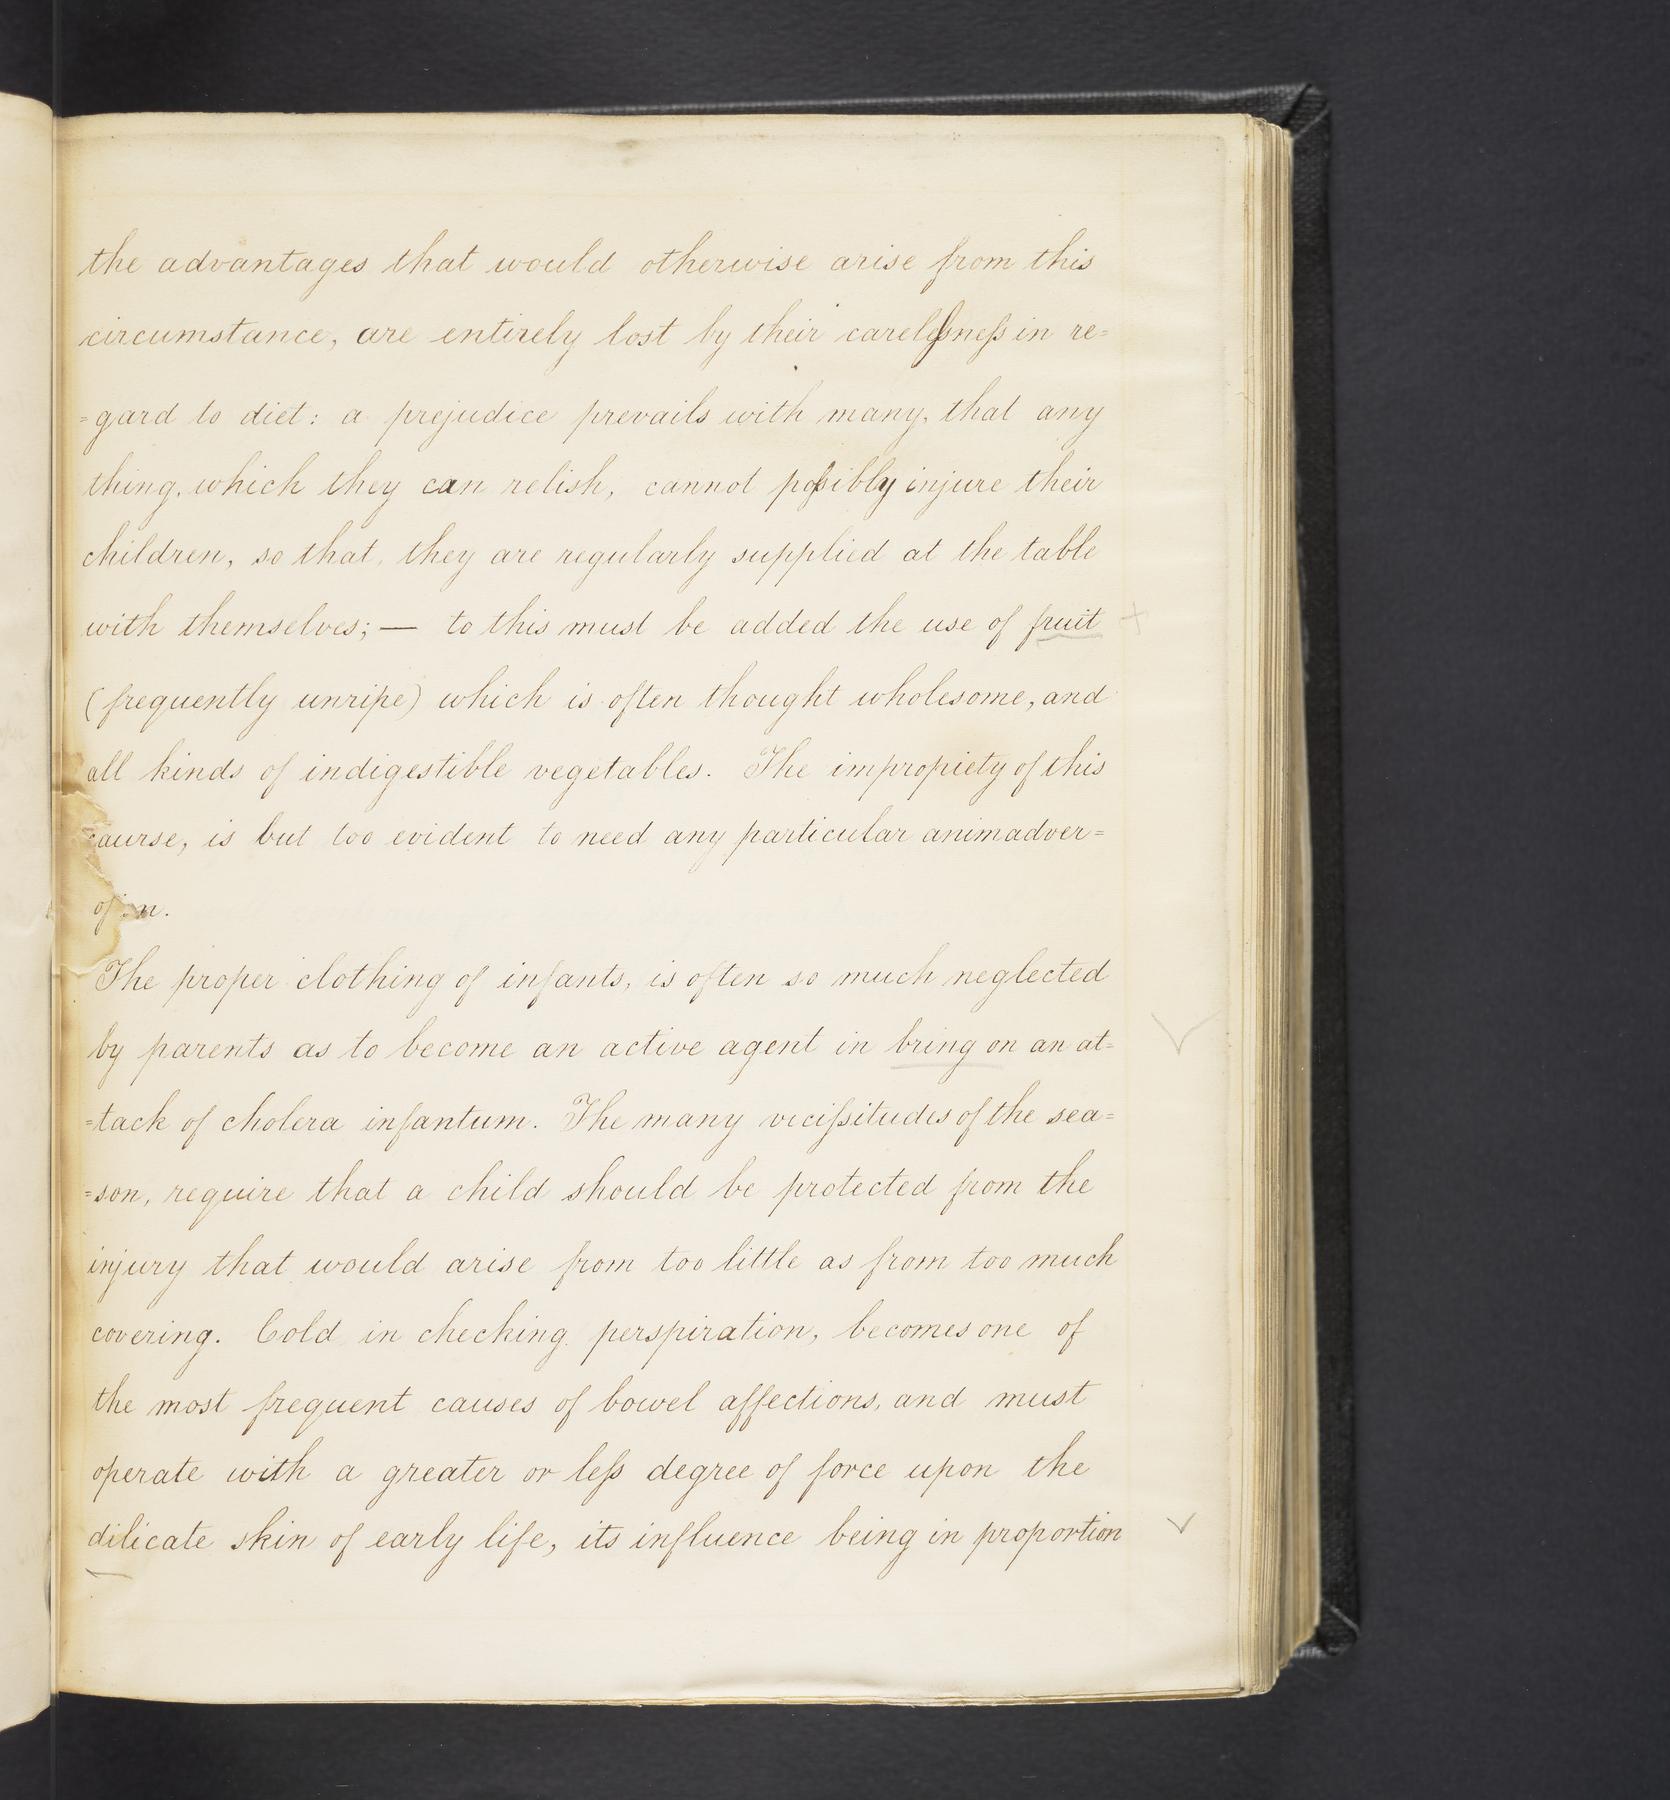 the advantages that would otherwise arise from this
circumstance, are entirely lost by their carelessness in re=
=gard to diet: a prejudice prevails with many, that any
thing, which they can relish, cannot possibly injure their
children, so that, they are regularly supplied at the table
with themselves; — to this must be added the use of fruit +
(frequently unripe) which is often thought wholesome, and
all kinds of indigestible vegetables. The impropiety of this
caurse, is but too evident to need any particular animadver=
The proper clothing of infants, is often so much neglected
by parents as to become an active agent in bring on an at=
=tack of cholera infantum. The many vicissitudes of the sea=
=son, require that a child should be protected from the
injury that would arise from too little as from too much
covering. Cold in checking perspiration, becomes one of
the most frequent causes of bowel affections, and must
operate with a greater or less degree of force upon the
dilicate skin of early life, its influence being in proportion